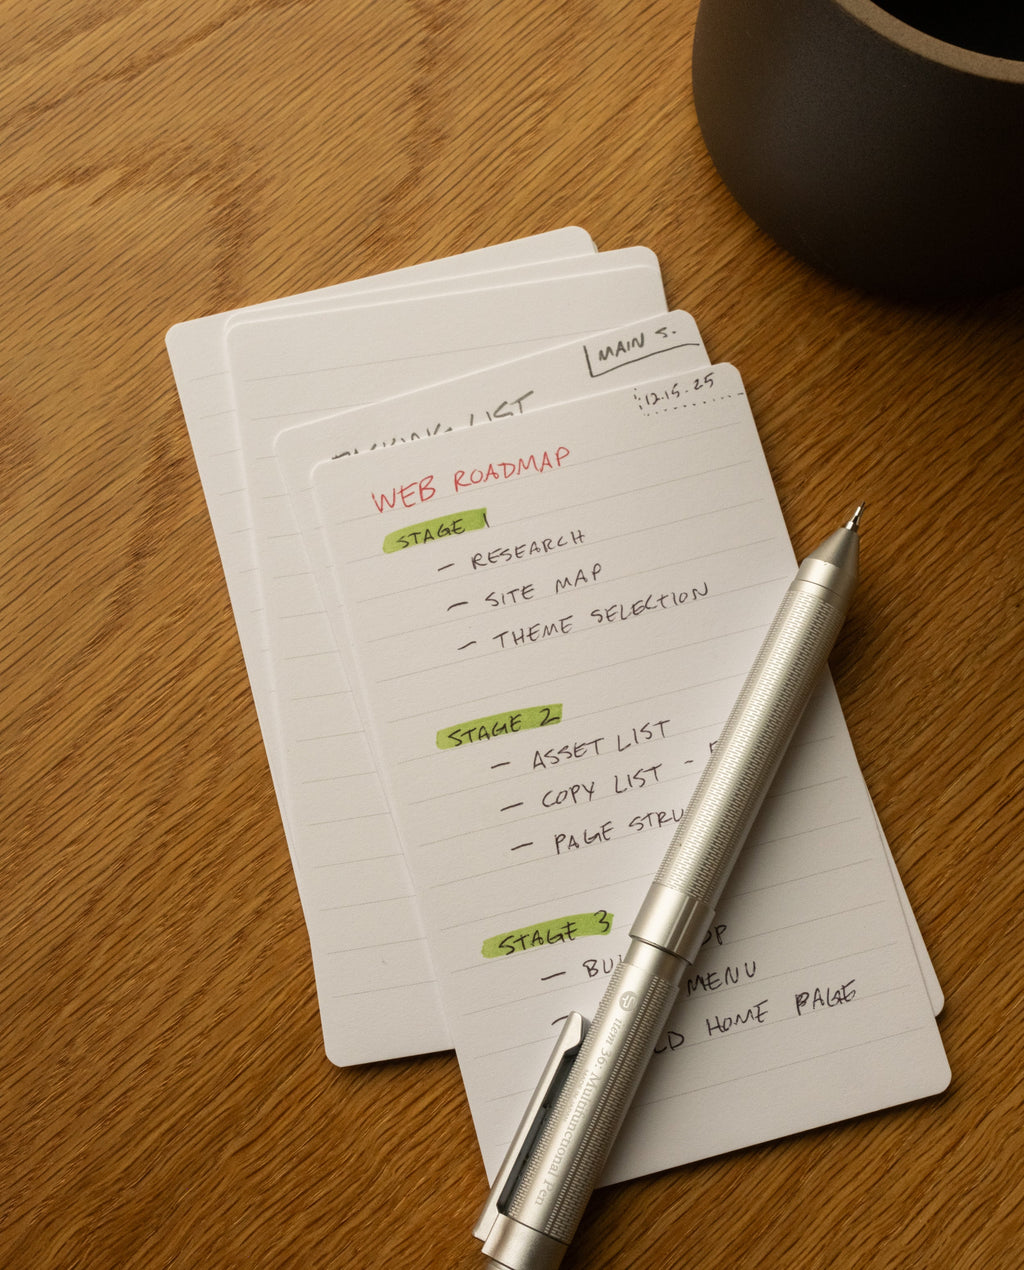 MAIN S.
LIST
12.15.25
WEB ROADMAP
STAGE 1
– RESEARCH
– SITE MAP
– THEME SELECTION
STAGE 2
– ASSET LIST
– COPY LIST –
– PAGE
STAGE 3
–
MENU
HOME PAGE
item 36: Multifunctional Pen